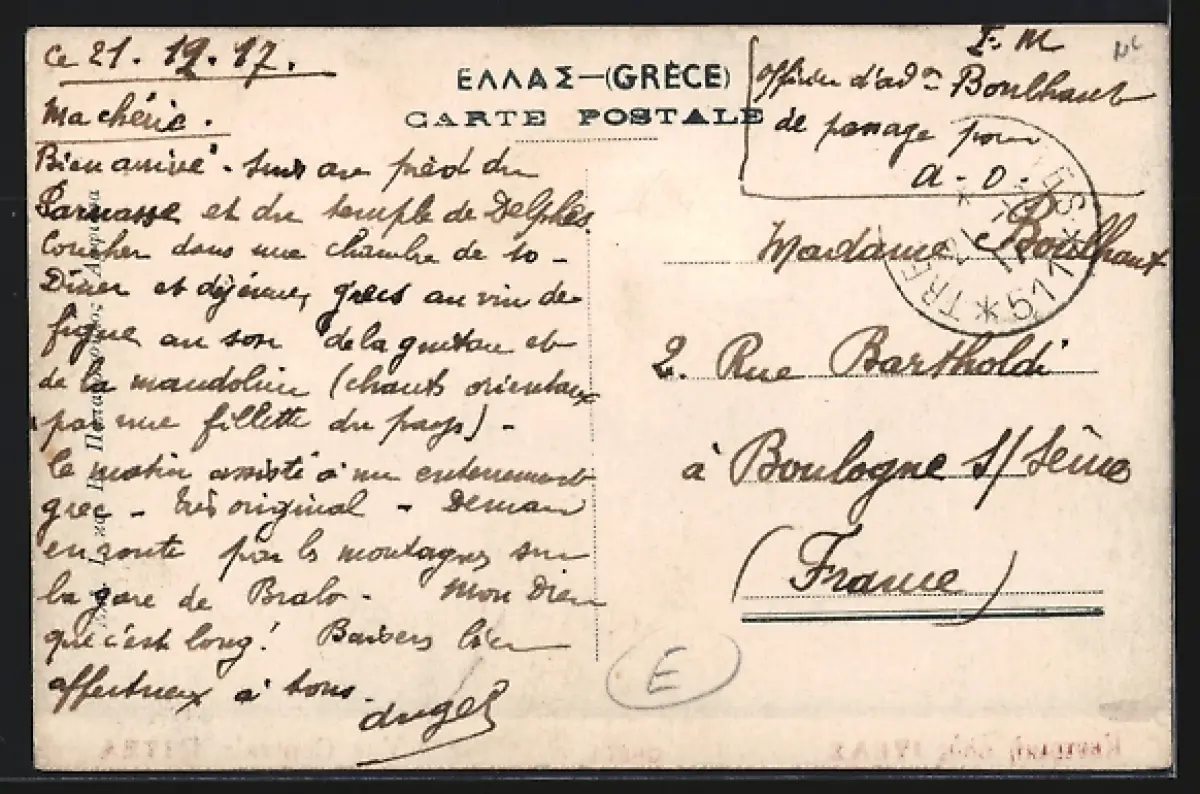 Ce 21. 12. 17.
Ma chérie.
Bien arrivé - suis au pied du
Parnasse et du temple de Delphes
Coucher dans une chambre de 10 -
Diner et déjeuner grecs au vin de
figue au son de la guitare et
de la mandoline (chants orientaux
par une fillette du pays) -
Ce matin assisté à un enterrement
grec - très original - Demain
en route par les montagnes sur
la gare de Bralo - Mon Dieu
que c'est long! Baisers bien
affectueux à tous.
ΕΛΛΑΣ—(GRÈCE)
CARTE POSTALE
E. M
Officier d'adon Boulhaut
de passage pour
A - O -
TRE
21
*511*
Madame Boulhaut
2. Rue Bartholdi
à Boulogne s/ Seine
(France)
E